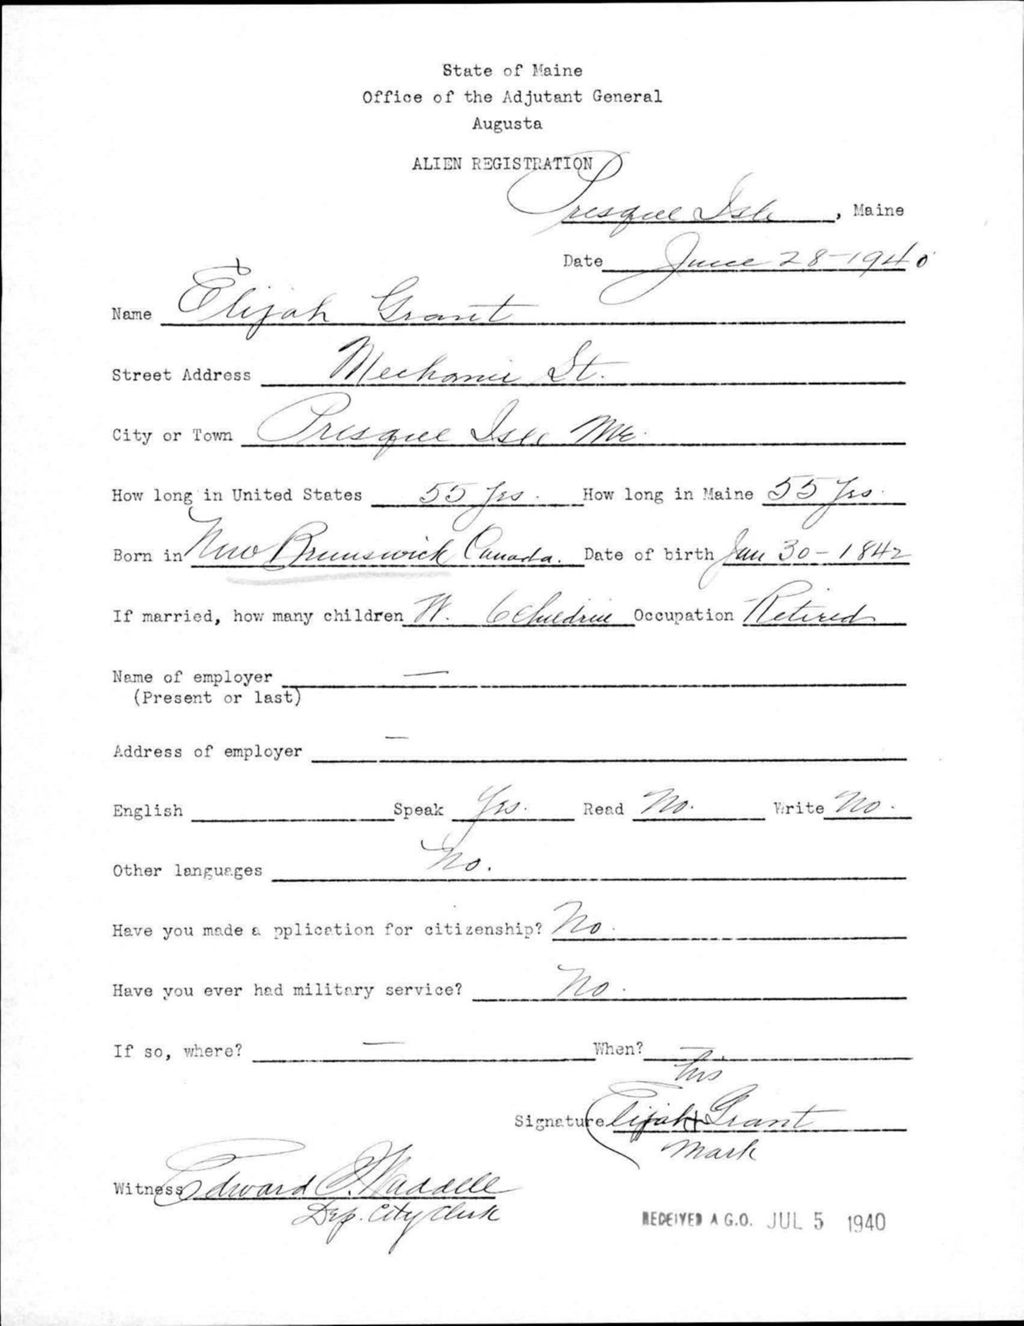 State of Maine
Office of the Adjutant General
Augusta
ALIEN REGISTRATION
Presque Isle, Maine
Date June 28-1940
Name Elijah Grant
Street Address Mechanic St.
City or Town Presque Isle Me.
How long in United States 55 yrs. How long in Maine 55 yrs.
Born in New Brunswick Canada. Date of birth Jan 30 - 1842
If married, how many children W. 6 Children Occupation Retired
Name of employer —
(Present or last)
Address of employer —
English Speak Yes. Read No. Write No.
Other languages No.
Have you made a pplication for citizenship? No.
Have you ever had military service? No.
If so, where? — When? —
his
Signature Elijah + Grant
mark
Witness Edward
Dep. City Clerk
RECEIVED A G.O. JUL 5 1940